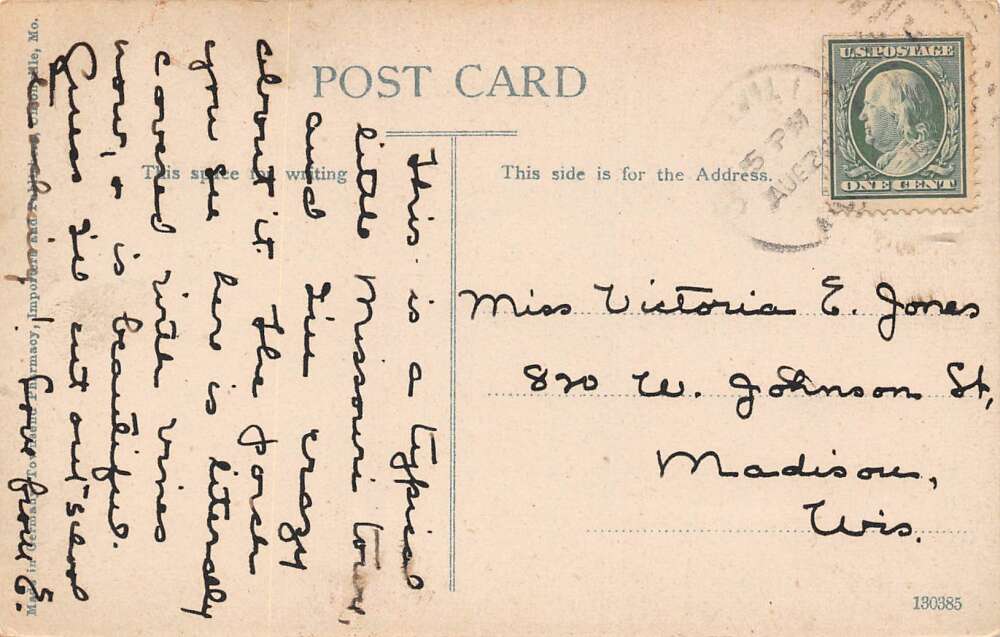 POST CARD
This space for writing
This side is for the Address.
U.S. POSTAGE
ONE CENT
5 PM
This is a typical
little Missouri town,
and I'm crazy
about it. The porch
you see here is literally
covered with vines
now, & is beautiful.
Guess I'll cut out "school
Love from E.
Miss Victoria E. Jones
820 W. Johnson St,
Madison,
Wis.
Made in Germany, Townsend Pharmacy, Importers and Mo.
130385